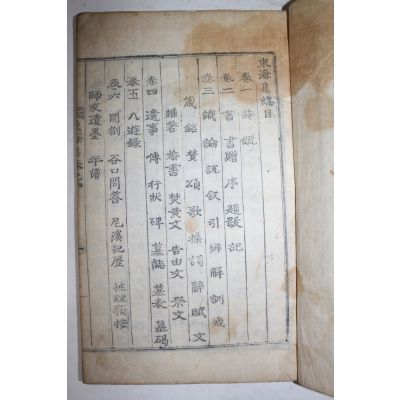 東海集總目
卷一 詩 疏
卷二 書 書贈 序 題跋 記
卷三 識 論 說 敘 引 辨 解 訓 戒
箴 銘 贊 頌 歌 操 詞 辭 賦 文
雜著 婚書 焚黃文 告由文 祭文
卷四 遺事 傳 行狀 碑 墓誌 墓表 墓碣
卷五 八遊錄
卷六 問 谷口問答 尼溪記歷 性理類按
師友遺墨 年譜